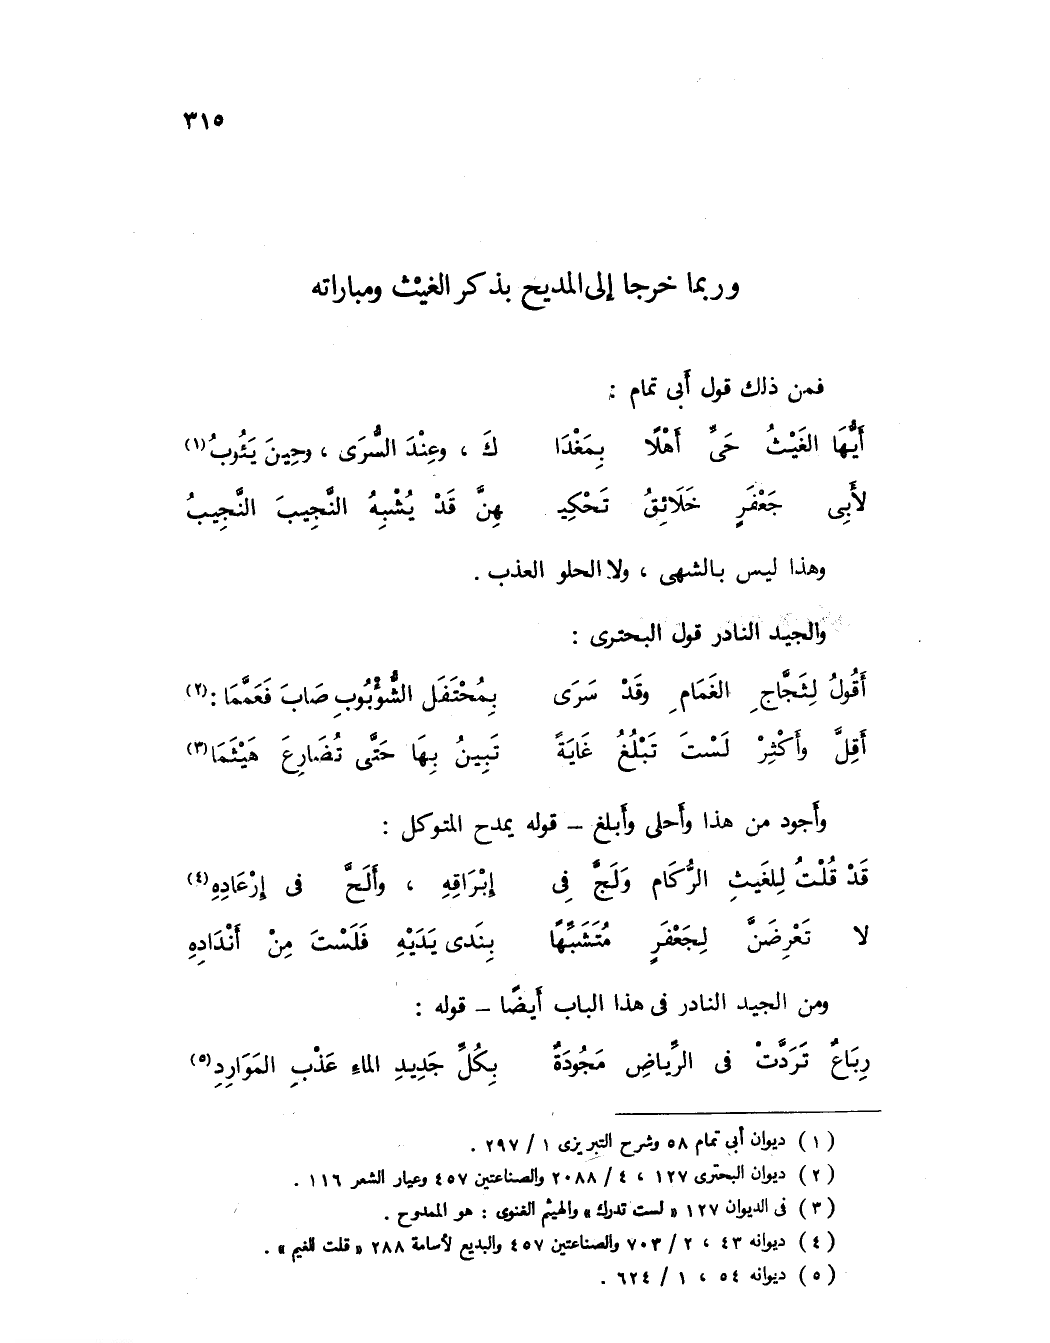 ٣١٥
وربما خرجا إلى المديح بذكر الغيْث ومباراته
فمن ذلك قول أَبى تمام :
أَيُّهَا الغَيْثُ حَىِّ أَهْلًا بِمَغْدَا كَ ، وعِنْدَ السُّرَى ، وحِينَ يَئُوبُ(١)
لأَبِى جَعْفَرٍ خَلَائِقُ تَحْكِيـ هِنَّ قَدْ يُشْبِهُ النَّجِيبَ النَّجِيبُ
وهذا ليس بالشهى ، ولا الحلو العذب .
والجيد النادر قول البحترى :
أَقُولُ لِثَجَّاجِ الغَمَامِ وقَدْ سَرَى بِمُحْتَفَلِ الشُّؤْبُوبِ صَابَ فَعَمَّمَا :(٢)
أَقِلَّ وأَكْثِرْ لَسْتَ تَبْلُغُ غَايَةً تَبِينُ بِهَا حَتَّى تُضَارِعَ هَيْثَمَا(٣)
وأَجود من هذا وأَحلى وأَبلغ – قوله يمدح المتوكل :
قَدْ قُلْتُ لِلغَيثِ الرُّكَامِ وَلَجَّ فِى إِبْرَاقِهِ ، وأَلَحَّ فى إِرْعَادِهِ(٤)
لا تَعْرِضَنَّ لِجَعْفَرٍ مُتَشَبِّهًا بِنَدى يَدَيْهِ فَلَسْتَ مِنْ أَنْدَادِهِ
ومن الجيد النادر فى هذا الباب أَيضًا – قوله :
رِبَاعٌ تَرَدَّتْ فى الرِّيَاضِ مَجُودَةٌ بِكُلِّ جَدِيدِ الماءِ عَذْبِ المَوَارِدِ(٥)
(١) ديوان أبى تمام ٥٨ وشرح التبريزى ١ / ٢٩٧ .
(٢) ديوان البحترى ١٢٧ ، ٤ / ٢٠٨٨ والصناعتين ٤٥٧ وعيار الشعر ١١٦ .
(٣) فى الديوان ١٢٧ « لست تدرك » والهيثم الغنوى : هو الممدوح .
(٤) ديوانه ٤٣ ، ٢ / ٧٠٣ والصناعتين ٤٥٧ والبديع لأسامة ٢٨٨ « قلت للغيم » .
(٥) ديوانه ٥٤ ، ١ / ٦٢٤ .